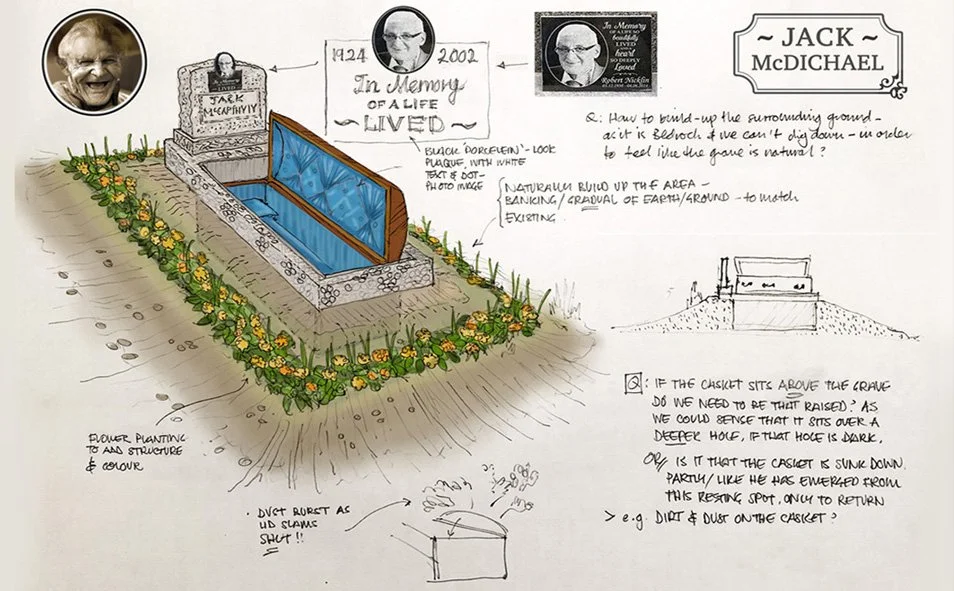 1924 2002
In Memory
OF A LIFE
~ LIVED ~
In Memory
OF A LIFE SO
beautifully
LIVED
heart
SO DEEPLY
Loved
Robert Nicklin
~ JACK ~
McDICHAEL
In Memory
LIVED
JACK
Q: How to build-up the surrounding ground -
as it is Bedrock & we can't dig down - in order
to feel like the grave is natural?
BLACK 'PORCELEIN' - LOOK
PLAQUE, WITH WHITE
TEXT & DOT-
PHOTO IMAGE
NATURALLY BUILD UP THE AREA -
BANKING/ GRADUAL OF EARTH/GROUND - to match
EXISTING.
Q: IF THE CASKET SITS ABOVE THE GRAVE
DO WE NEED TO BE THAT RAISED? AS
WE COULD SENSE THAT IT SITS OVER A
DEEPER HOLE, IF THAT HOLE IS DARK.
OR/ IS IT THAT THE CASKET IS SUNK DOWN.
PARTLY/ LIKE HE HAS EMERGED FROM
THIS RESTING SPOT, ONLY TO RETURN
> e.g. DIRT & DUST ON THE CASKET?
FLOWER PLANTING
TO ADD STRUCTURE
& COLOUR
· DUST BURST AS
LID SLAMS
SHUT!!